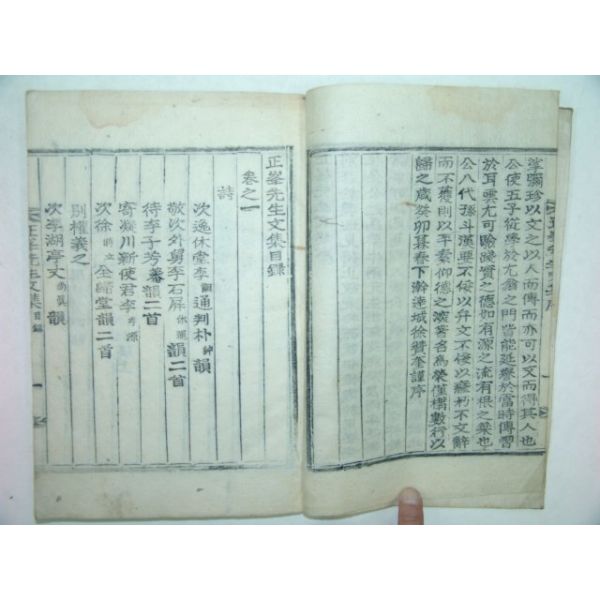 掌彌珍以文之以人而傳而亦可以文而得其人也
公使五子從學於尤翁之門皆能延譽於當時傳習
於耳雲尤可驗踐實之德如有源之流有根之葉也
公八代孫斗漢要不佞以弁文不佞以癈朽不文辭
而不獲則以平素仰德之 名爲榮僅構數行以
歸之歲癸卯暮春下澣達城徐贊奎謹序
正峯先生文集目錄
卷之一
詩
次逸休堂李 通判朴 韻
敬次外舅李石屏 韻二首
待李子芳 韻二首
寄凝川新使君李
次徐 全歸堂韻二首
別權義之
次李湖亭丈 韻
正峯先生文集 目錄 一